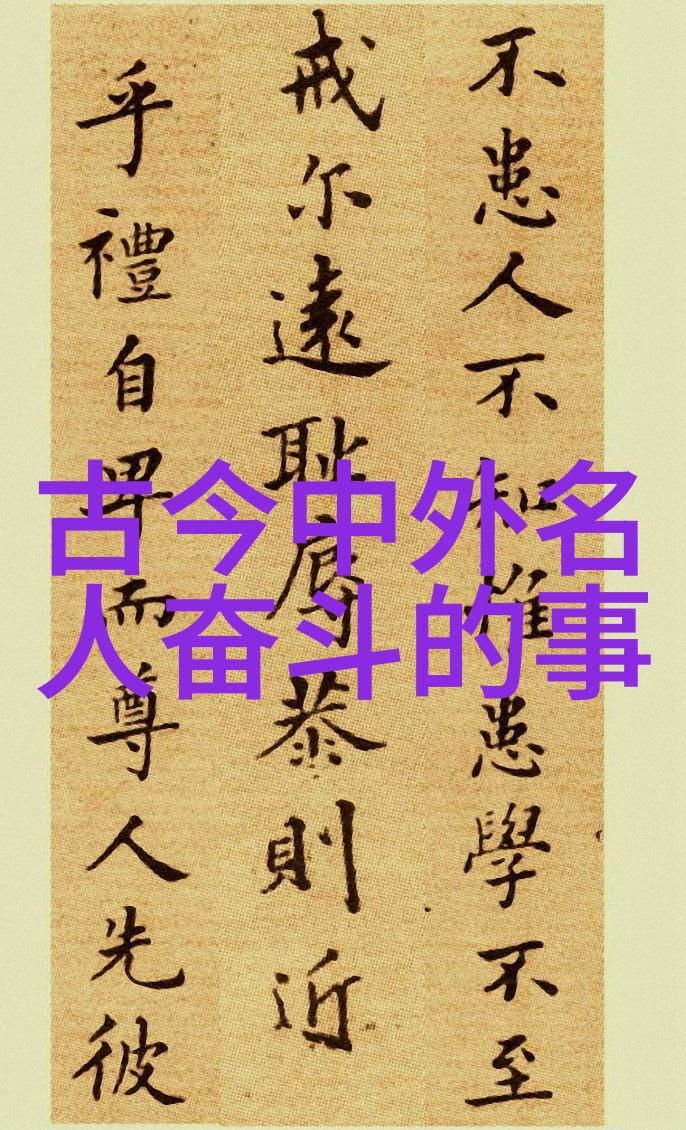 不患人不知惟患學不至
戒尔遠恥辱恭則近
乎禮自卑而尊人先彼
古今中外名
人奋斗的事